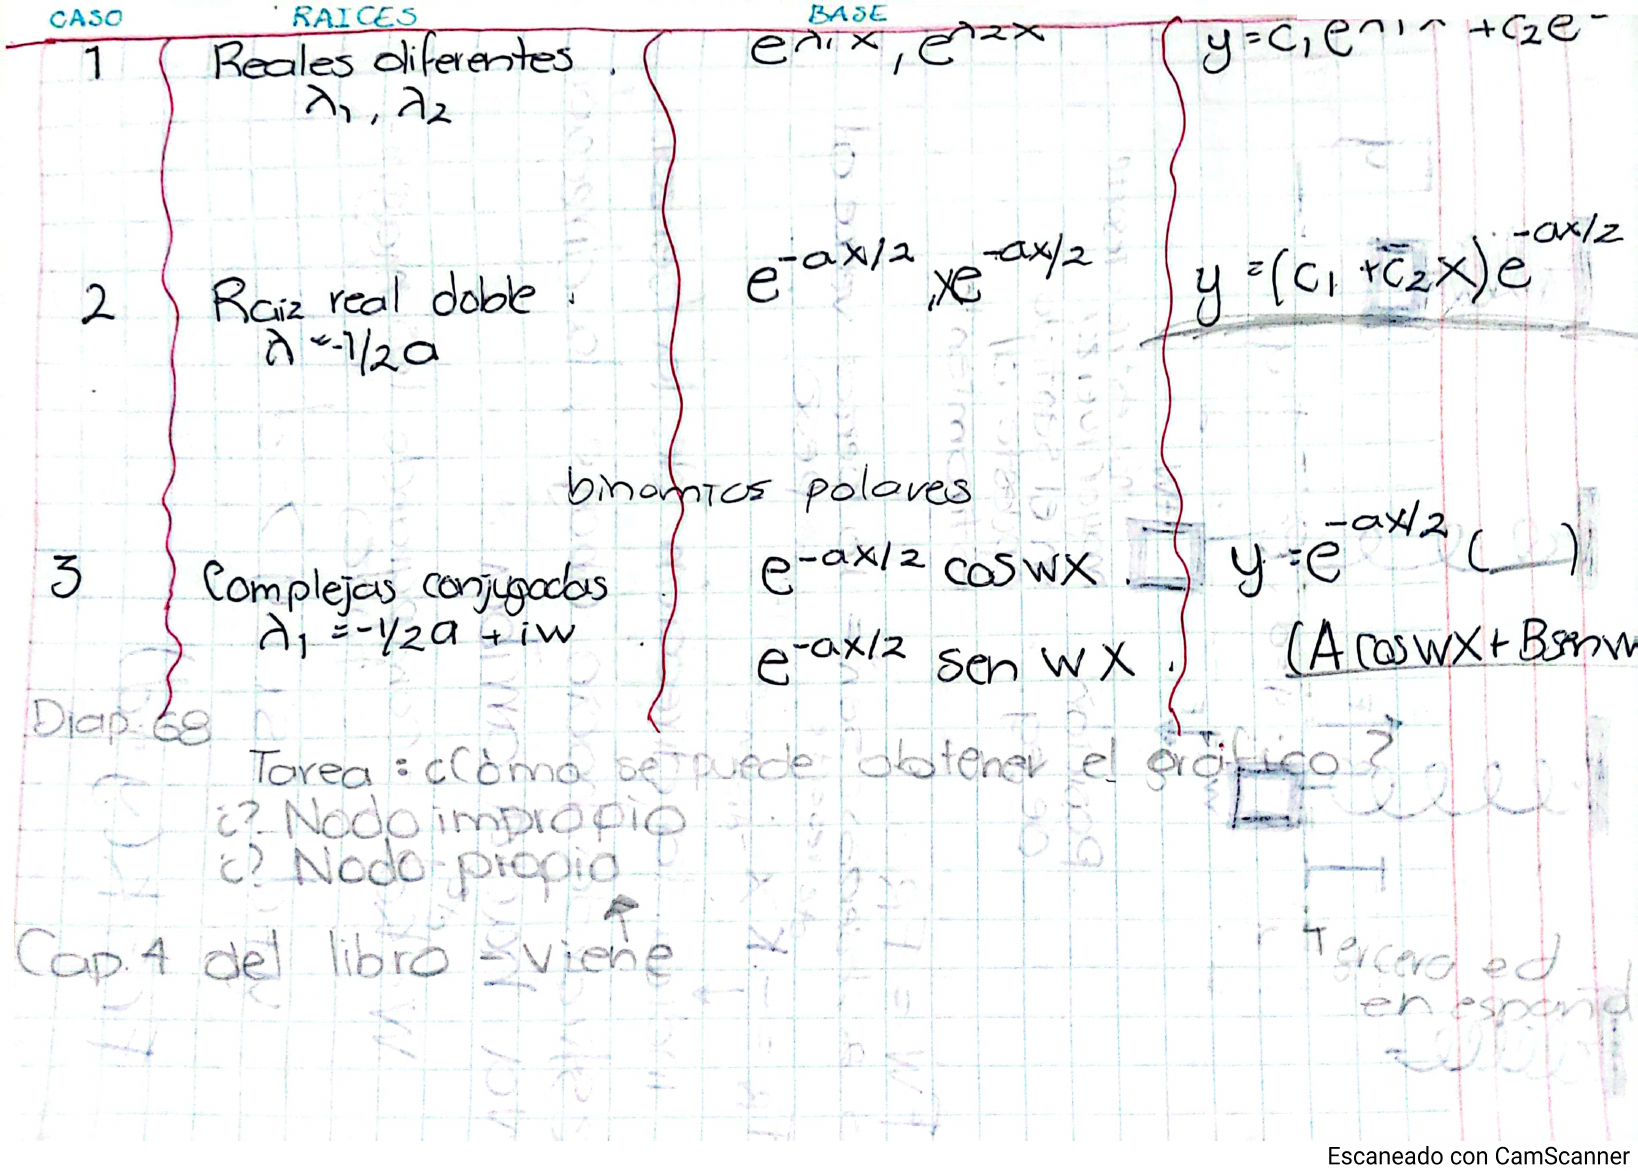 CASO RAICES BASE
1 Reales diferentes. e^λ1x, e^λ2x y=c₁e^λ1x +c₂e
λ₁, λ₂
2 Raiz real doble. e^-ax/2, xe^-ax/2 y=(c₁ +c₂x)e^-ax/2
λ=-1/2a
binomios polares
3 Complejas conjugadas e^-ax/2 cos wx. y=e^-ax/2 (__)
λ₁=-1/2a + iw e^-ax/2 sen wx. (A cos wx + B sen w
Diap. 68
Tarea: ¿Cómo se puede obtener el gráfico?
¿? Nodo impropio
¿? Nodo propio
Cap. 4 del libro - viene
Tercera ed
en español
Escaneado con CamScanner